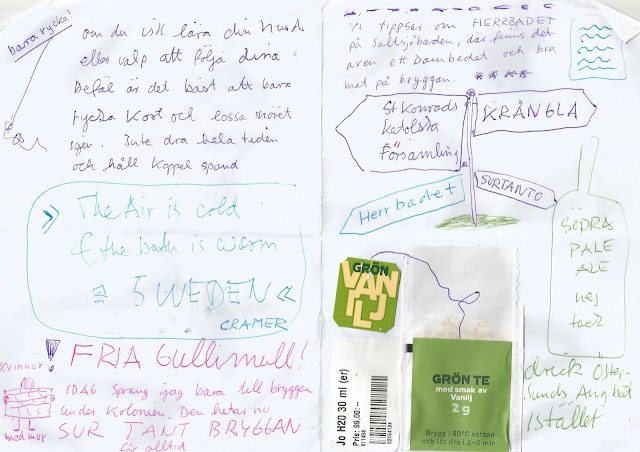 bara rycka!
om du vill lära din hund
eller valp att följa dina
befäl är det bäst att bara
rycka kort och lossa snöret
igen. Inte dra hela tiden
och håll koppel spänd
» The Air is cold
& the bath is warm
= SWEDEN «
CRAMER
Kvinnor
med mur
! FRIA Gullimull!
IDAG sprang jag bara till bryggan
under Kolonien. Den heter nu
SUR TANT BRYGGAN
för alltid
Vi tippser om HERRBADET
på Saltsjöbaden, där finns det
även ett Dambadet och bra
mat på bryggan.
St Konrads
Katolska
Församling
KRÅNGLA
Herrbadet
SURTANTO
SÖDRA
PALE
ALE
nej
tack
drick Öster-
sunds Ångbåt
istället
GRÖN
VAN
ILJ
Jo H20 30 ml (er)
Pris: 99,00:-
GRÖN TE
med smak av
Vanilj
2 g
Brygg i 80°C vatten
och låt dra i 2-3 min.